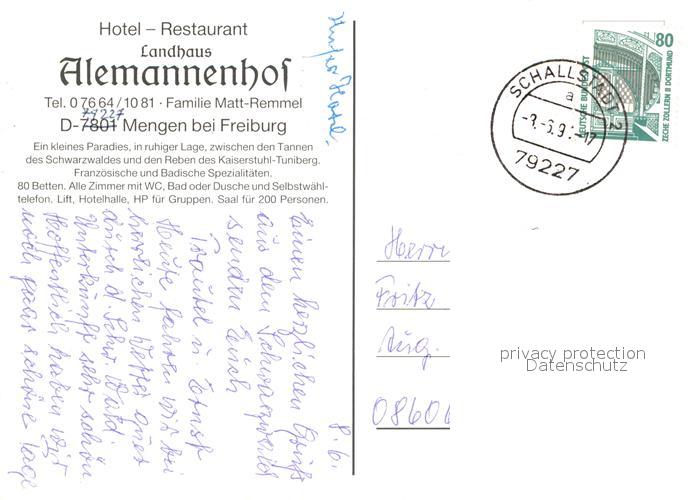 Hotel – Restaurant
Landhaus
Alemannenhof
Tel. 0 76 64 / 10 81 · Familie Matt-Remmel
79227
D-7801 Mengen bei Freiburg
Ein kleines Paradies, in ruhiger Lage, zwischen den Tannen
des Schwarzwaldes und den Reben des Kaiserstuhl-Tuniberg.
Französische und Badische Spezialitäten.
80 Betten. Alle Zimmer mit WC, Bad oder Dusche und Selbstwähl-
telefon. Lift, Hotelhalle, HP für Gruppen. Saal für 200 Personen.
Unser Hotel.
8.6.
Einen herzlichen Gruß
aus dem Schwarzwald
senden Euch
Trautel u. Ernst
Heute fahren wir bei
herrlichem Wetter quer
durch d. Schw. Wald.
Unterkunft sehr schön.
Hoffentlich haben wir
noch paar schöne Tage
80
DEUTSCHE BUNDESPOST
ZECHE ZOLLERN II DORTMUND
SCHALLSTADT 2
a
79227
Herrn
Fritz
Aug.
08606
privacy protection
Datenschutz